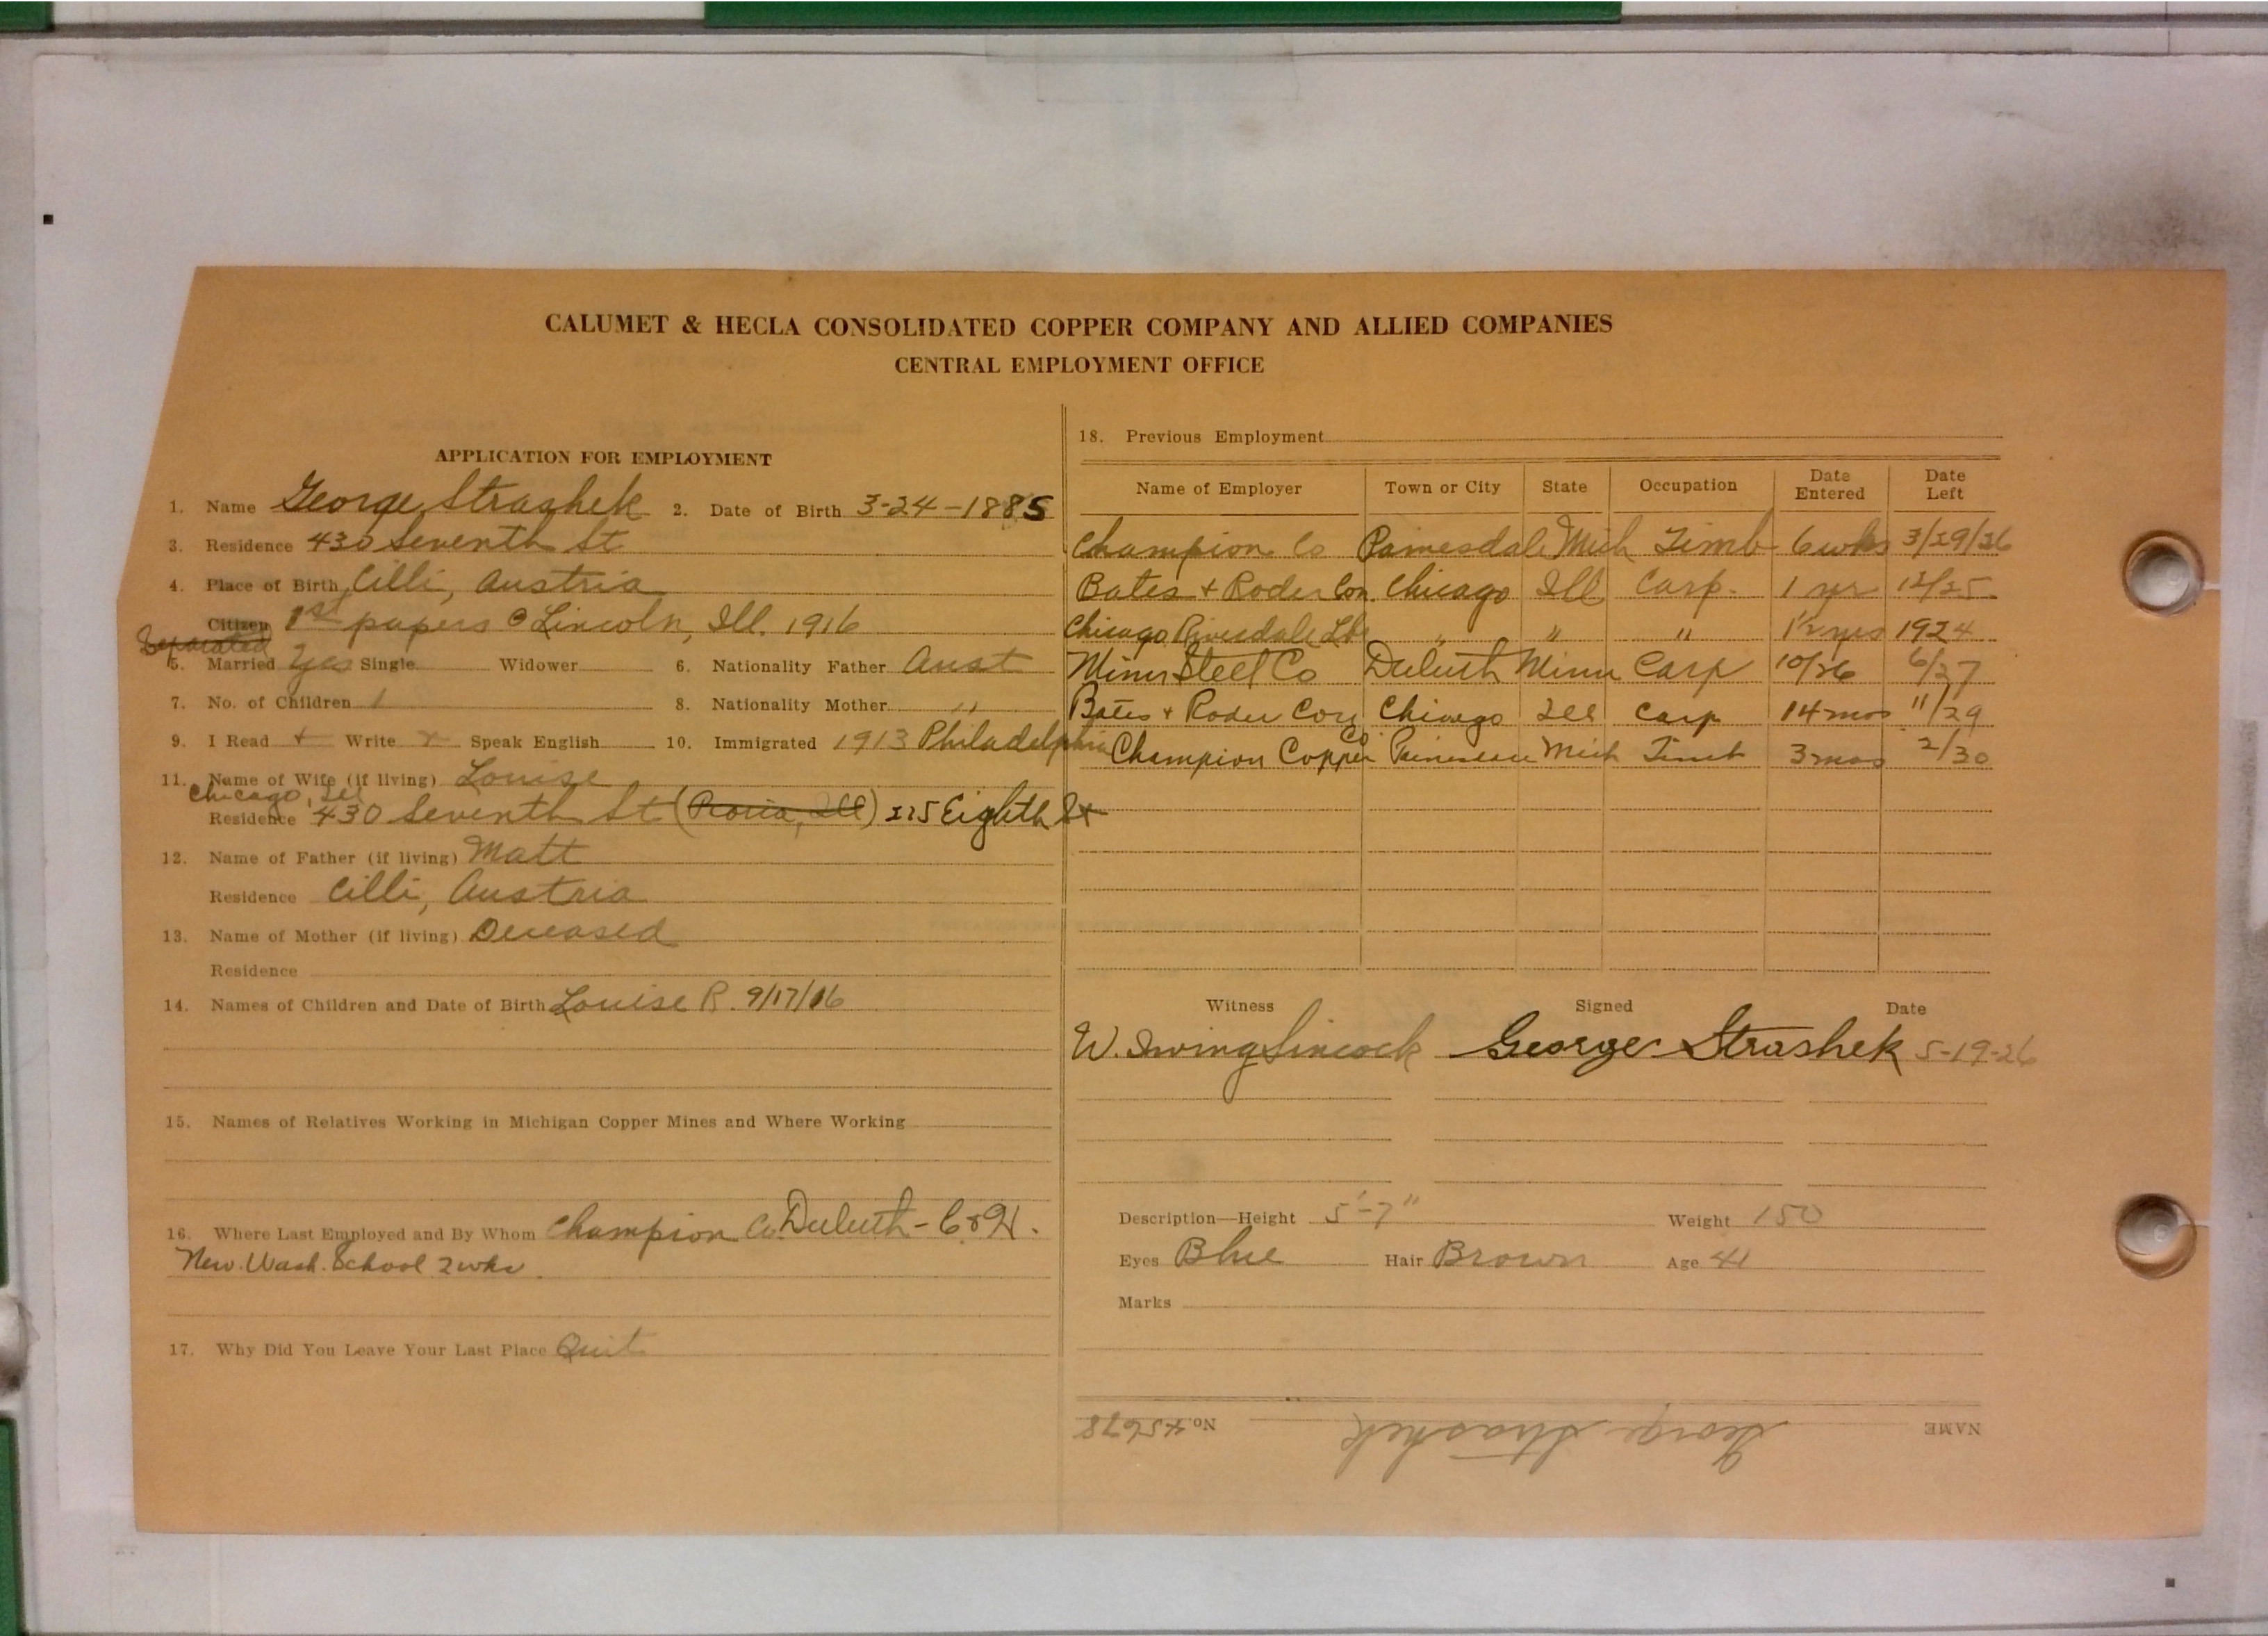 CALUMET & HECLA CONSOLIDATED COPPER COMPANY AND ALLIED COMPANIES
CENTRAL EMPLOYMENT OFFICE
APPLICATION FOR EMPLOYMENT
1. Name George Strashek 2. Date of Birth 3-24-1885
3. Residence 430 Seventh St
4. Place of Birth Cilli, Austria
Citizen 1st papers @ Lincoln, Ill. 1916
Separated
5. Married Yes Single Widower 6. Nationality Father Aust
7. No. of Children 1 8. Nationality Mother "
9. I Read + Write + Speak English 10. Immigrated 1913 Philadelphia
11. Name of Wife (if living) Louise
Chicago, Ill
Residence 430 Seventh St (Peoria, Ill) 225 Eighth St
12. Name of Father (if living) Matt
Residence Cilli, Austria
13. Name of Mother (if living) Deceased
Residence
14. Names of Children and Date of Birth Louise R. 9/17/16
15. Names of Relatives Working in Michigan Copper Mines and Where Working
16. Where Last Employed and By Whom Champion Co. Duluth - C & H.
New Wash. School 2 wks.
17. Why Did You Leave Your Last Place Quit
18. Previous Employment
Name of Employer Town or City State Occupation Date Entered Date Left
Champion Co Painesdale Mich Timb 6 wks 3/29/26
Bates + Roder Con. Chicago Ill Carp. 1 yr 12/25
Chicago Riversdale Lbr " " " 1½ yrs 1924
Minn Steel Co Duluth Minn Carp 10/26 6/27
Bates + Roder Con Chicago Ill Carp 14 mos 11/29
Champion Copper Co Mich Timb 3 mos 2/30
Witness Signed Date
W. Irving Sincock George Strashek 5-19-26
Description—Height 5'-7" Weight 150
Eyes Blue Hair Brown Age 41
Marks
NAME George Strashek No. 45678